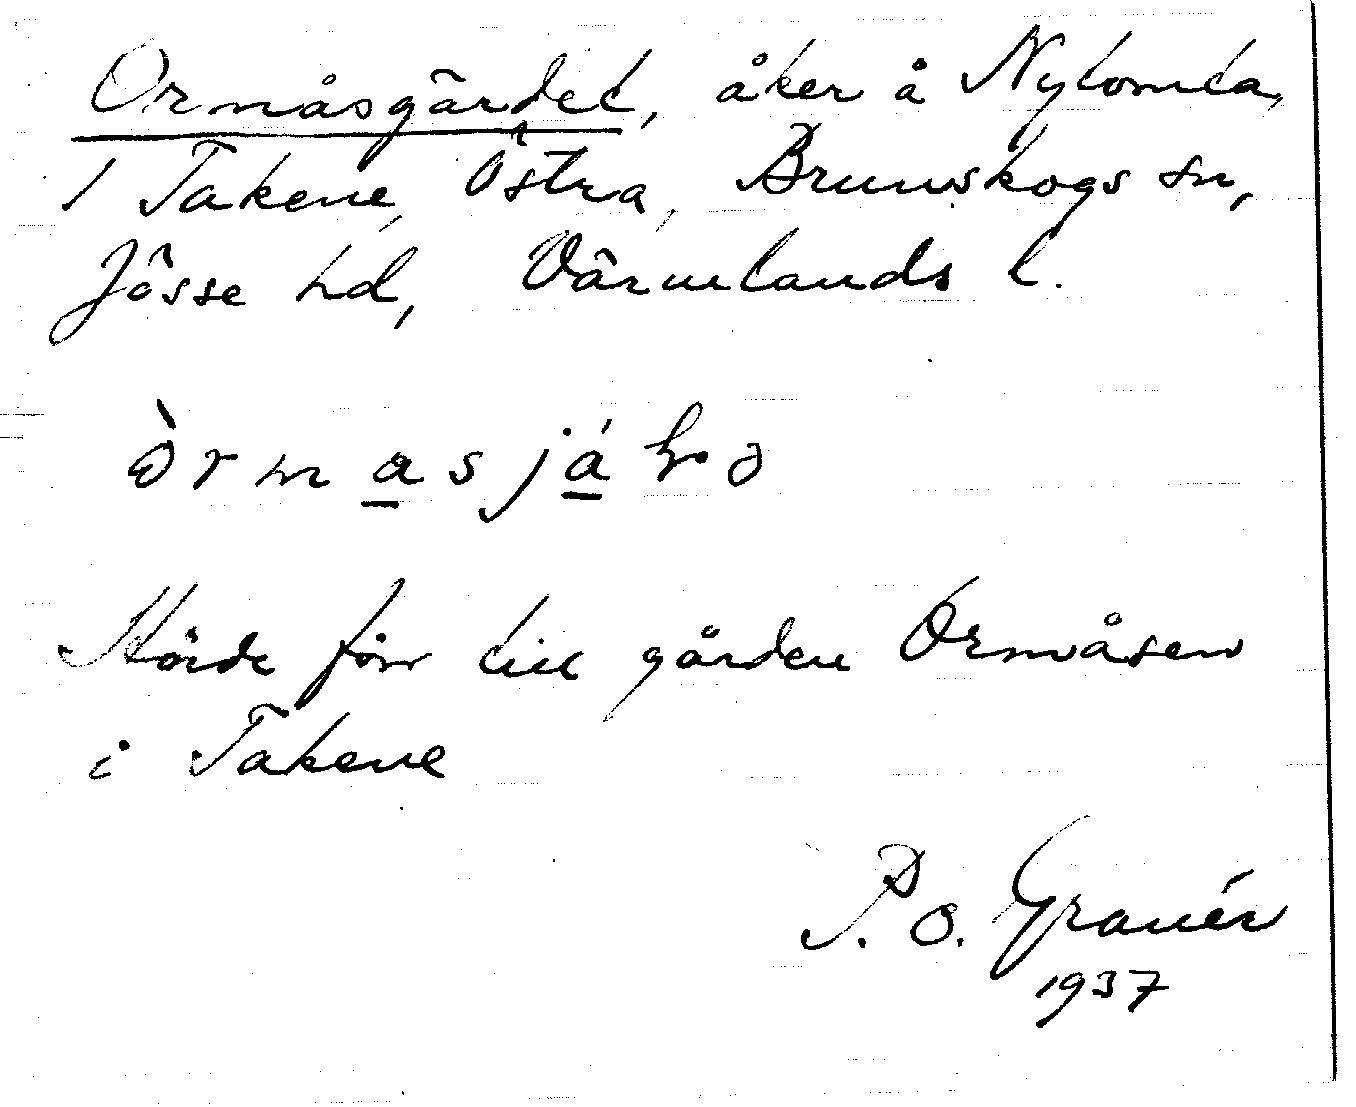 Ormåsgärdet, åker å Nytomta,
1 Takene, Östra, Brunskogs sn,
Jösse hd, Värmlands l.
Hörde förr till gården Ormåsen
i Takene
P. O. Granér
1937